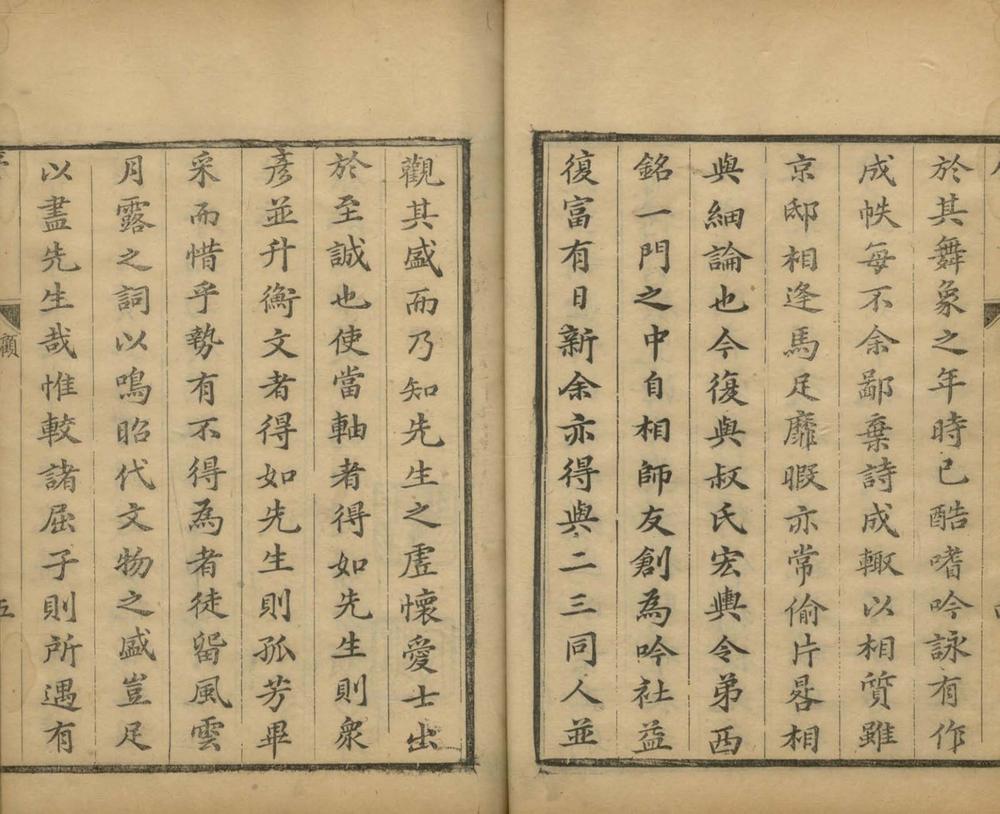 於其舞象之年時已酷嗜吟詠有作
成帙每不余鄙棄詩成輙以相質雖
京邸相逢馬足靡暇亦常偷片晷相
與細論也今復與叔氏宏輿令弟西
銘一門之中自相師友創為吟社益
復富有日新余亦得與二三同人並
觀其盛而乃知先生之虛懷愛士出
於至誠也使當軸者得如先生則衆
彥並升衡文者得如先生則孤芳畢
采而惜乎勢有不得為者徒留風雲
月露之詞以鳴昭代文物之盛豈足
以盡先生哉惟較諸屈子則所遇有
顧
五